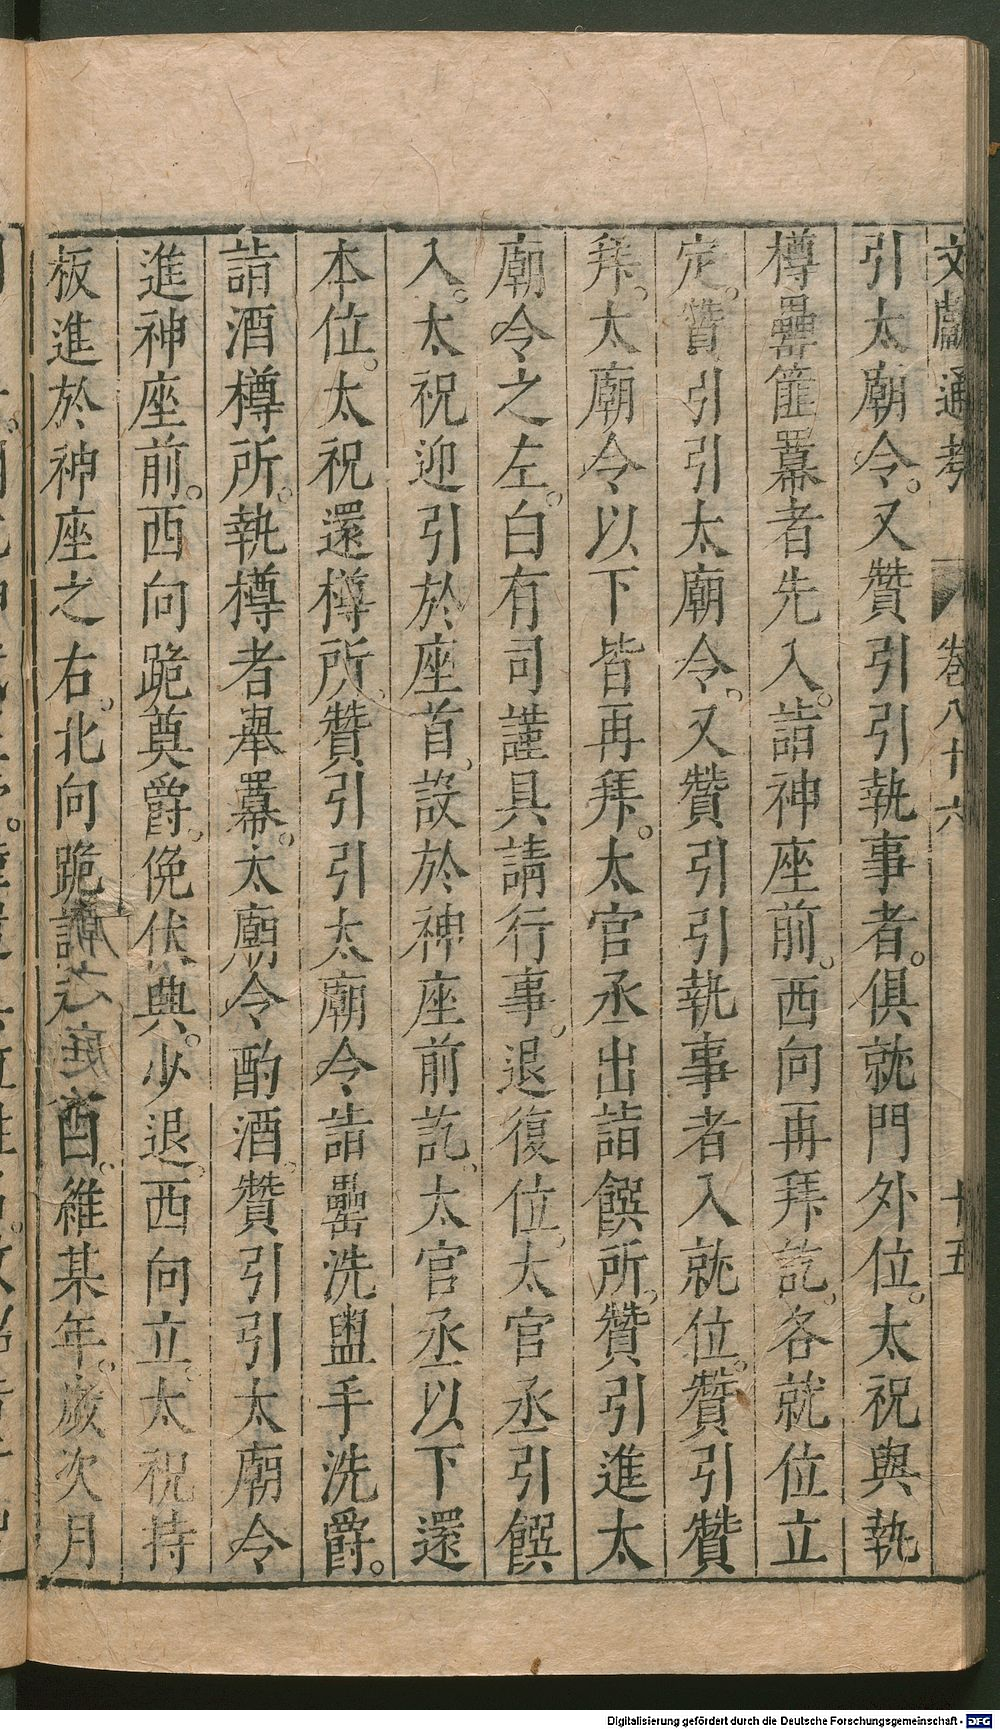 文獻通考 卷八十六 十五
引太廟令。又贊引引執事者。俱就門外位。太祝與執
樽罍篚羃者先入。詣神座前。西向再拜訖。各就位立
定。贊引引太廟令。又贊引引執事者入就位。贊引贊
拜。太廟令以下皆再拜。太官丞出詣饌所。贊引進太
廟令之左。白有司謹具請行事。退復位。太官丞引饌
入。太祝迎引於座首。設於神座前訖。太官丞以下還
本位。太祝還樽所。贊引引太廟令詣罍洗盥手洗爵。
詣酒樽所。執樽者舉羃。太廟令酌酒。贊引引太廟令
進神座前。西向跪奠爵。俛伏興。少退。西向立。太祝持
板進於神座之右。北向跪 維某年。歲次月
Digitalisierung gefördert durch die Deutsche Forschungsgemeinschaft - DFG